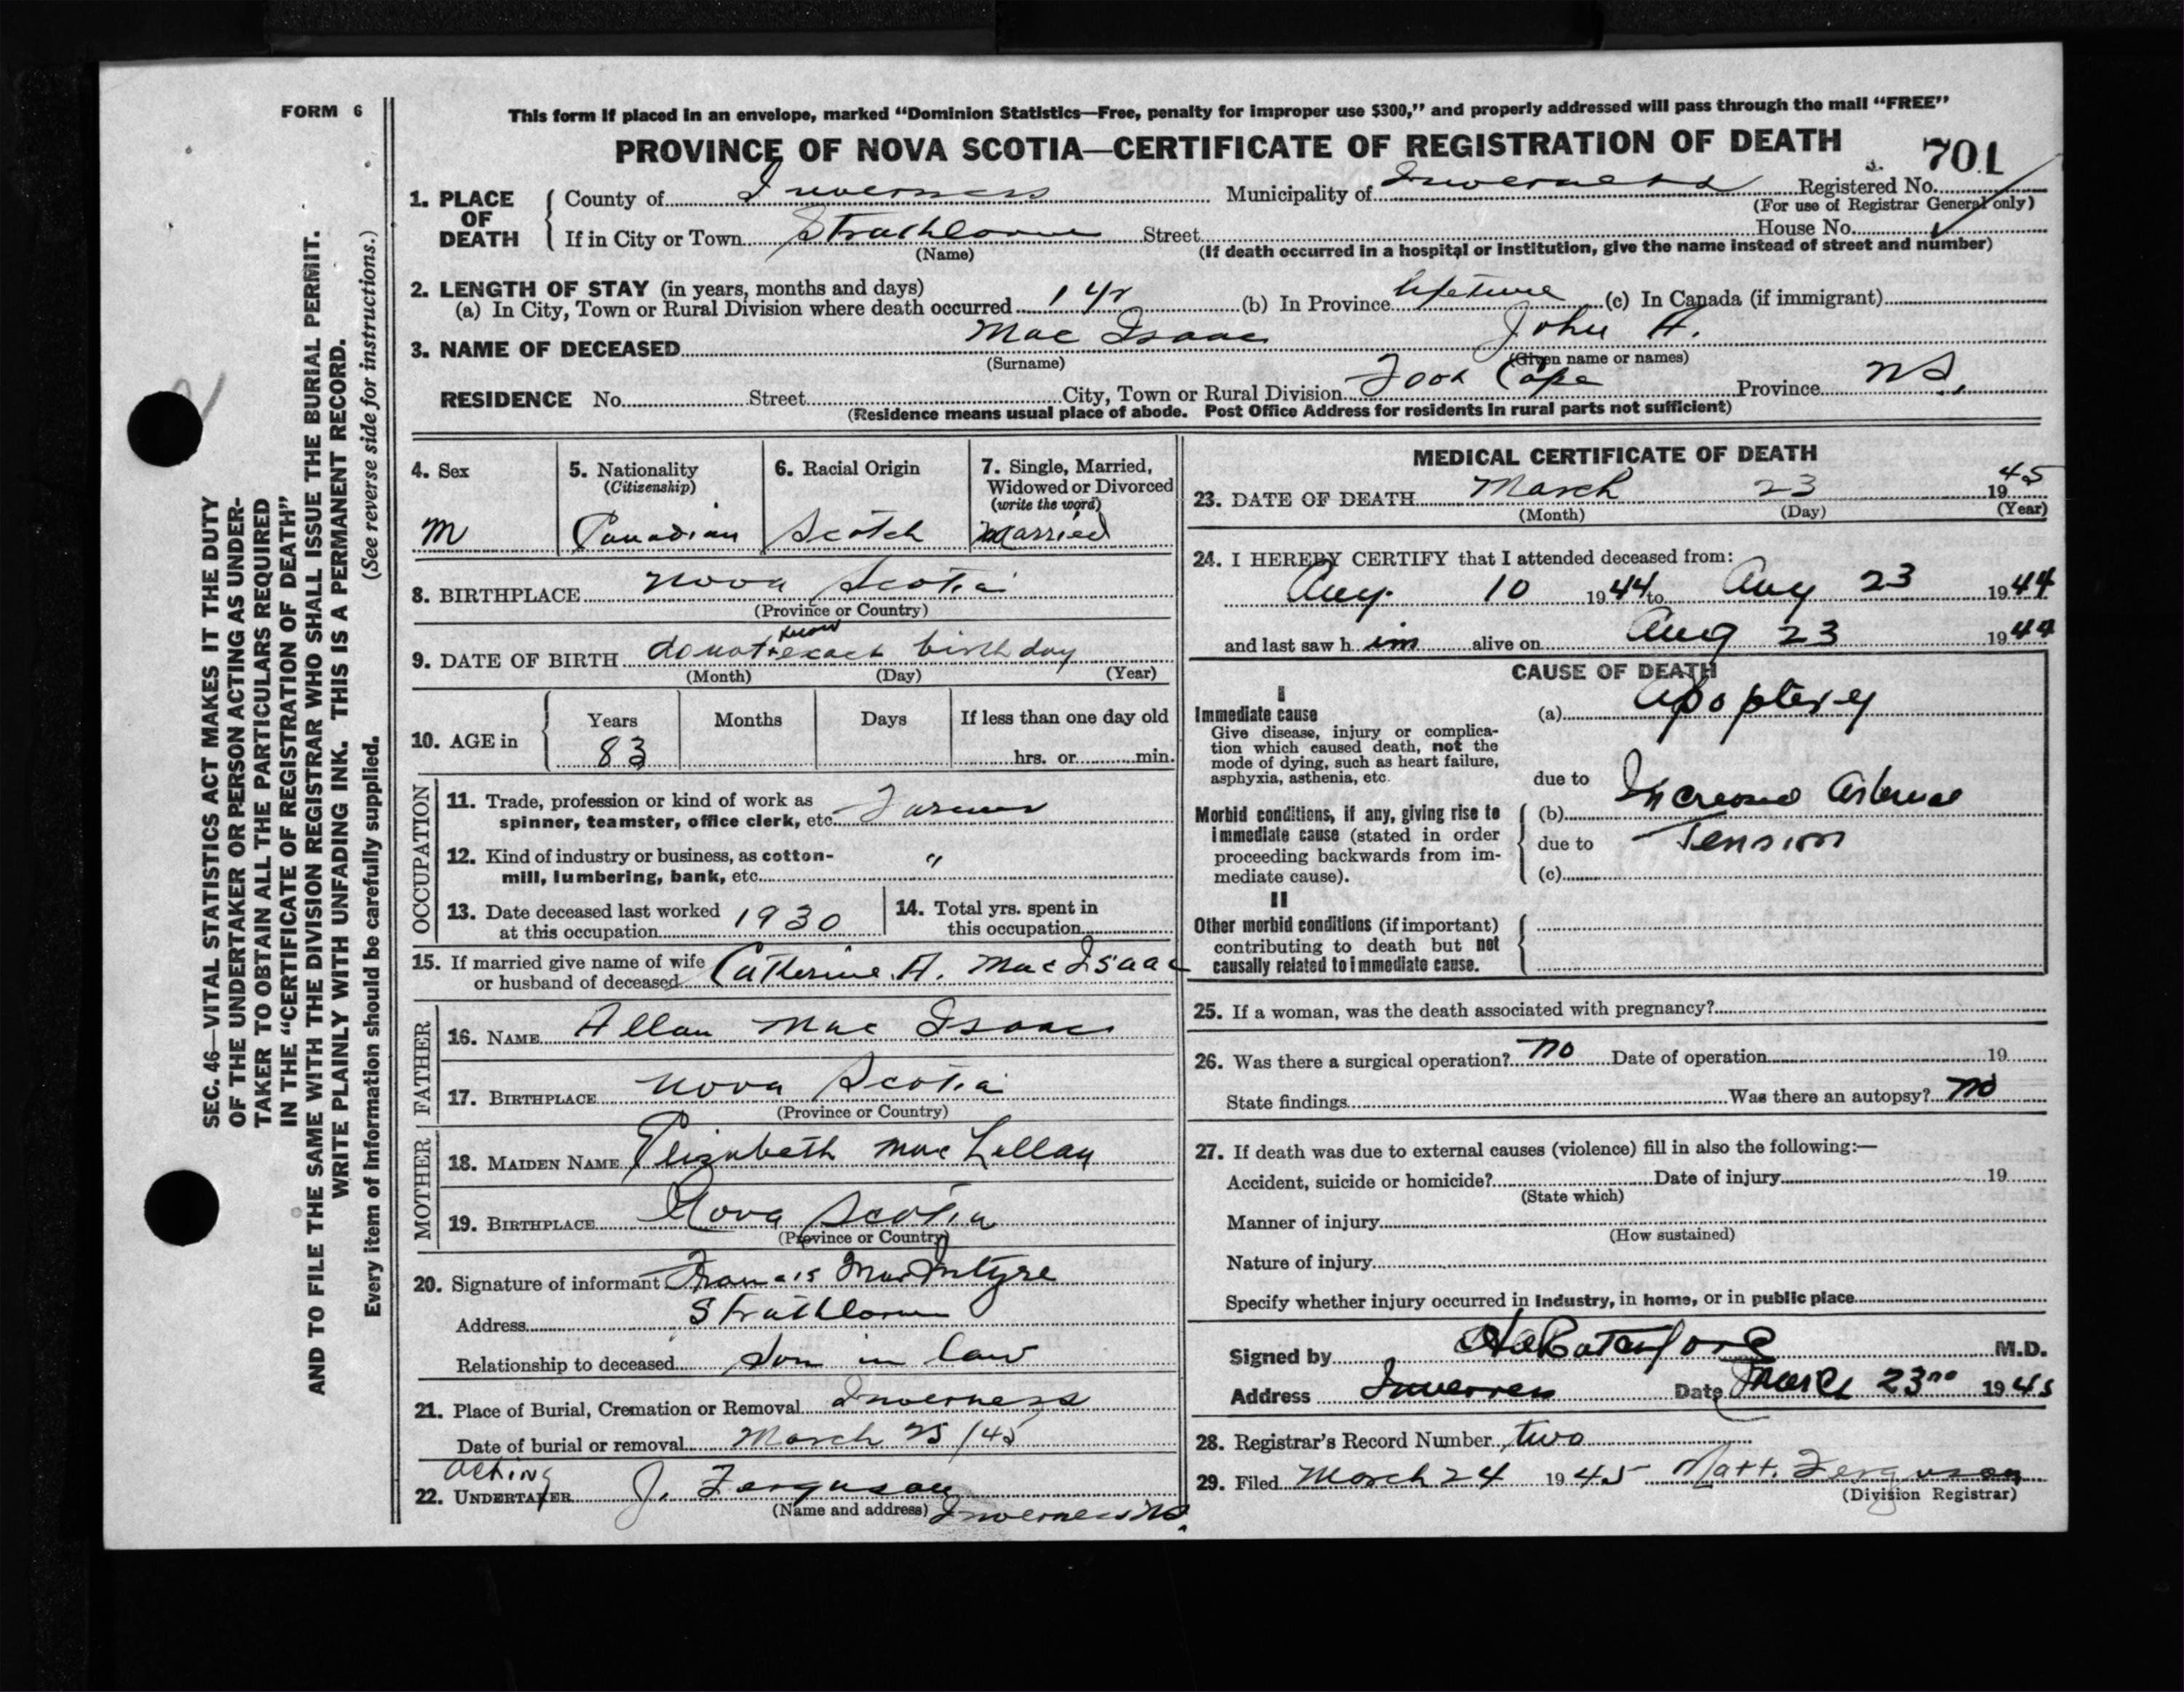 FORM 6
This form if placed in an envelope, marked "Dominion Statistics—Free, penalty for improper use $300," and properly addressed will pass through the mail "FREE"
PROVINCE OF NOVA SCOTIA—CERTIFICATE OF REGISTRATION OF DEATH
701
1. PLACE OF DEATH
County of Inverness Municipality of Inverness Registered No.
(For use of Registrar General only)
If in City or Town Strathlorne Street House No.
(Name) (If death occurred in a hospital or institution, give the name instead of street and number)
2. LENGTH OF STAY (in years, months and days)
(a) In City, Town or Rural Division where death occurred 1 yr (b) In Province lifetime (c) In Canada (if immigrant)
3. NAME OF DECEASED Mac Isaac John A.
(Surname) (Given name or names)
RESIDENCE No. Street City, Town or Rural Division Foot Cape Province N.S.
(Residence means usual place of abode. Post Office Address for residents in rural parts not sufficient)
4. Sex
M
5. Nationality
(Citizenship)
Canadian
6. Racial Origin
Scotch
7. Single, Married,
Widowed or Divorced
(write the word)
Married
8. BIRTHPLACE Nova Scotia
(Province or Country)
9. DATE OF BIRTH do not know exact birth day
(Month) (Day) (Year)
10. AGE in
Years Months Days If less than one day old
83 hrs. or min.
OCCUPATION
11. Trade, profession or kind of work as
spinner, teamster, office clerk, etc. Farmer
12. Kind of industry or business, as cotton-
mill, lumbering, bank, etc. "
13. Date deceased last worked
at this occupation 1930
14. Total yrs. spent in
this occupation
15. If married give name of wife
or husband of deceased Catherine A. MacIsaac
FATHER
16. NAME Allan Mac Isaac
17. BIRTHPLACE Nova Scotia
(Province or Country)
MOTHER
18. MAIDEN NAME Elizabeth MacLellan
19. BIRTHPLACE Nova Scotia
(Province or Country)
20. Signature of informant Francis MacIntyre
Address Strathlorne
Relationship to deceased Son in law
21. Place of Burial, Cremation or Removal Inverness
Date of burial or removal March 25/45
acting
22. UNDERTAKER J. Ferguson
(Name and address) Inverness N.S.
MEDICAL CERTIFICATE OF DEATH
23. DATE OF DEATH March 23 1945
(Month) (Day) (Year)
24. I HEREBY CERTIFY that I attended deceased from:
Aug. 10 1944 to Aug 23 1944
and last saw h im alive on Aug 23 1944
CAUSE OF DEATH
I
Immediate cause
Give disease, injury or complica-
tion which caused death, not the
mode of dying, such as heart failure,
asphyxia, asthenia, etc.
(a) Apoplexy
due to
Morbid conditions, if any, giving rise to
immediate cause (stated in order
proceeding backwards from im-
mediate cause).
(b) Increased Arterial
due to Tension
(c)
II
Other morbid conditions (if important)
contributing to death but not
causally related to immediate cause.
25. If a woman, was the death associated with pregnancy?
26. Was there a surgical operation? no Date of operation 19
State findings Was there an autopsy? no
27. If death was due to external causes (violence) fill in also the following:—
Accident, suicide or homicide? Date of injury 19
(State which)
Manner of injury
(How sustained)
Nature of injury
Specify whether injury occurred in industry, in home, or in public place
Signed by M.D.
Address Inverness Date March 23rd 1945
28. Registrar's Record Number two
29. Filed March 24 1945 Matt. Ferguson
(Division Registrar)
SEC. 46—VITAL STATISTICS ACT MAKES IT THE DUTY
OF THE UNDERTAKER OR PERSON ACTING AS UNDER-
TAKER TO OBTAIN ALL THE PARTICULARS REQUIRED
IN THE "CERTIFICATE OF REGISTRATION OF DEATH"
AND TO FILE THE SAME WITH THE DIVISION REGISTRAR WHO SHALL ISSUE THE BURIAL PERMIT.
WRITE PLAINLY WITH UNFADING INK. THIS IS A PERMANENT RECORD.
Every item of information should be carefully supplied. (See reverse side for instructions.)